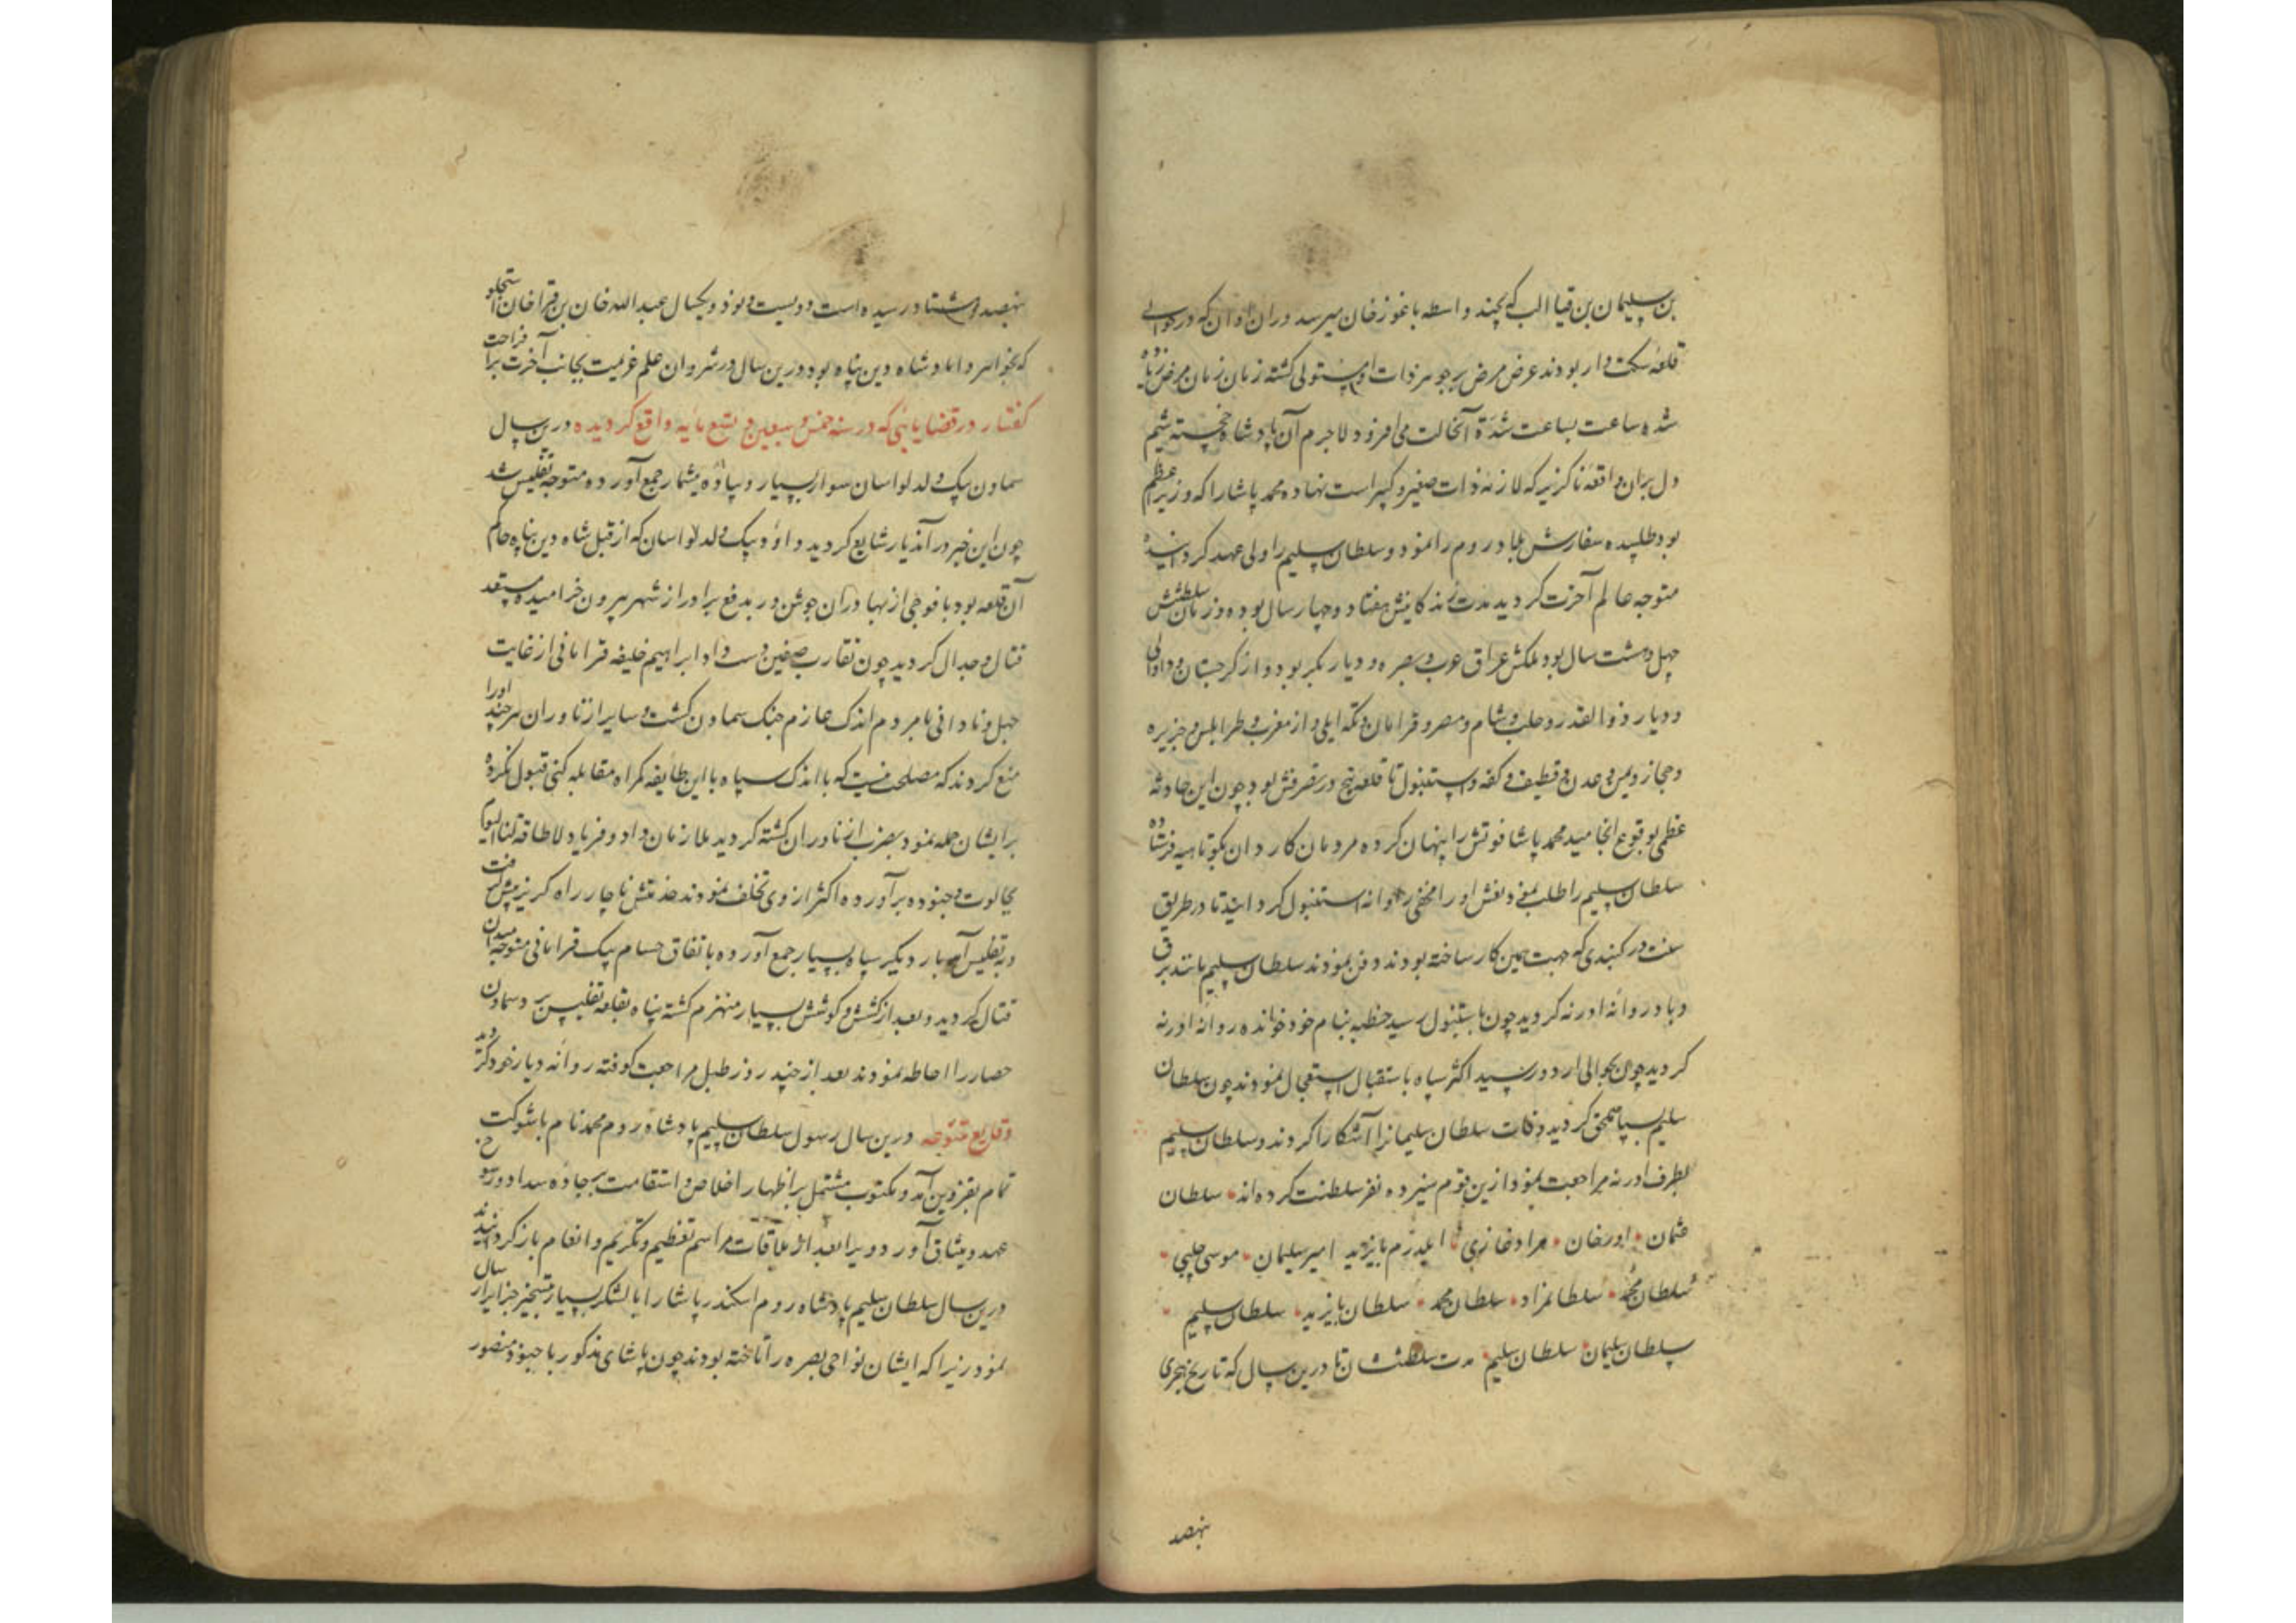 بن سلیمان بن قیا الب که بچند واسطه باغوز خان میرسد دران اوان که در حوالی
قلعه سکت وار بودند عرض مرض بر جوهر ذات او مستولی کشته زمان زمان مرض زیاده
شده ساعت بساعت شدة آنحالت می افزود لاجرم آن پادشاه خجسته شیم
دل بران واقعه ناکزیر که لازمه ذات صغیر و کبیر است نهاده محمد پاشا را که وزیر اعظم
بود طلبیده سفارش بلاد روم را نمود و سلطان سلیم را ولی عهد کردانیده
متوجه عالم آخرت کردید مدت زندکانیش هفتاد و چهار سال بوده و زمان سلطنتش
چهل و هشت سال بود ملکش عراق عرب و بصره و دیار بکر بود و از کرجستان وداوالی
و دیار ذوالقدر و حلب و شام و مصر و قرامان و تکه ایلی و از مغرب طرابلس و جزیره
و حجاز و یمن و عدن و قطیف و کفه و استنبول تا قلعه بچ در تصرفش بود چون این حادثه
عظمی بوقوع انجامید محمد پاشا فوتش را پنهان کرده مردمان کاردان بکوتاهیه فرستاده
سلطان سلیم را طلب نمود و نعش او را مخفی روانه استنبول کردانید تا در طریق
سنت در کنبدی که جهت همین کار ساخته بودند دفن نمودند سلطان سلیم مانند برق
و باد روانه ادرنه کردید چون باستنبول رسید خطبه بنام خود خوانده روانه ادرنه
کردید چون بحوالی اردو رسید اکثر سپاه باستقبال استعجال نمودند چون سلطان
سلیم بسپاه ملحق کردید وفات سلطان سلیمانرا آشکارا کردند و سلطان سلیم
بطرف ادرنه مراجعت نمود ازین قوم سیزده نفر سلطنت کرده اند سلطان
عثمان اورخان مراد غازی ایلدرم بایزید امیر سلیمان موسی چلپی
سلطان محمد سلطانمراد سلطان محمد سلطان بایزید سلطان سلیم
سلطان سلیمان سلطان سلیم مدت سلطنتشان تا درین سال که تاریخ هجری
نهصد
نهصد و هشتاد رسیده است دویست و نود و یکسال عبدالله خان بن قرا خان استجلو
که بخواهر داماد شاه دین پناه بود درین سال در شروان علم عزیمت بجانب آخرت برافراخت
کفتار در قضایائی که در سنه خمس و سبعین و تسع مائه واقع کردیده درین سال
سماون بیک ولد لواسان سوار بسیار و پیاده بیشمار جمع آورده متوجه تفلیس شد
چون این خبر در آندیار شایع کردید داود بیک ولد لواسان که از قبل شاه دین پناه حاکم
آن قلعه بود با فوجی از بهادران جوشن در بدفع برادر از شهر بیرون خرامیده مستعد
قتال و جدال کردید چون تقارب صفین دست داد ابراهیم خلیفه قرامانی از غایت
جهل و نادانی با مردم اندک عازم جنک سماون کشت و سایر از ناوران هر چند او را
منع کردند که مصلحت نیست که با اندک سپاه با این طایفه کمراه مقابله کنی قبول نکرده
بر ایشان حمله نمود بضرب ازناوران کشته کردید ملازمان داد و فریاد لا طاقة لنا الیوم
بجالوت و جنوده برآورده اکثر از وی تخلف نمودند خدمتش ناچار راه کریز پیش کرفت
و به تفلیس آمد بار دیکر سپاه بسیار جمع آورده باتفاق حسام بیک قرامانی متوجه میدان
قتال کردید و بعد از کشش و کوشش بسیار منهزم کشته پناه بقلعه تفلیس برد سماون
حصار را احاطه نمودند بعد از چند روز طبل مراجعت کوفته روانه دیار خود کردند
وقایع متنوعه درین سال رسول سلطان سلیم پادشاه روم محمد نام با شوکت
تمام بقزوین آمد و مکتوب مشتمل بر اظهار اخلاص و استقامت بر جاده سداد و رسوخ
عهد و میثاق آورد و ویرا بعد از ملاقات مراسم تعظیم و تکریم و انعام باز کردانیدند
درین سال سلطان سلیم پادشاه روم اسکندر پاشا را با لشکر بسیار بتسخیر جزایر ارسال
نمود زیرا که ایشان نواحی بصره را تاخته بودند چون پاشای مذکور با جنود منصور